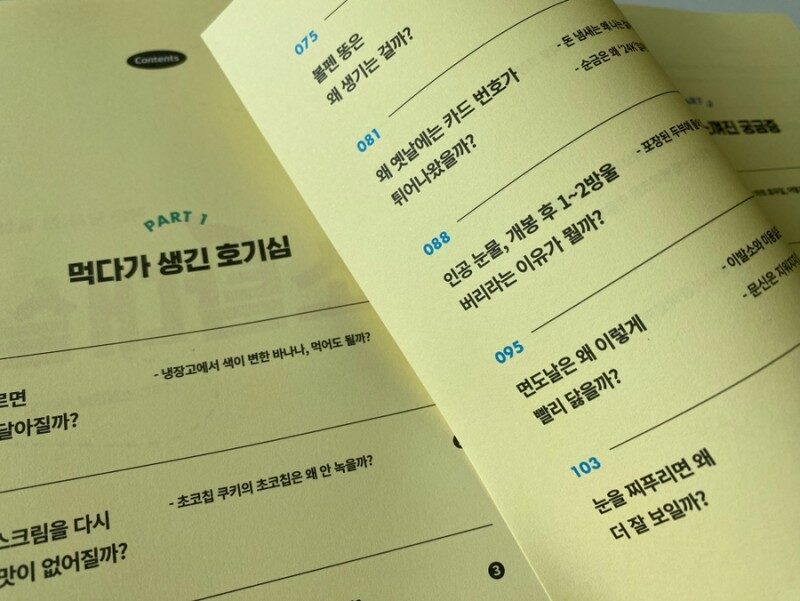 Contents
PART 1
먹다가 생긴 호기심
- 냉장고에서 색이 변한 바나나, 먹어도 될까?
르면
달아질까?
- 초코칩 쿠키의 초코칩은 왜 안 녹을까?
스크림을 다시
맛이 없어질까?
3
075
볼펜 똥은
왜 생기는 걸까?
- 돈 냄새는 왜 나는
- 순금은 왜 '24K'
081
왜 옛날에는 카드 번호가
튀어나왔을까?
- 포장된 두부에
088
인공 눈물, 개봉 후 1~2방울
버리라는 이유가 뭘까?
- 이발소와 미용실
- 문신은 지워지지
095
면도날은 왜 이렇게
빨리 닳을까?
103
눈을 찌푸리면 왜
더 잘 보일까?
PART 2
궁금증